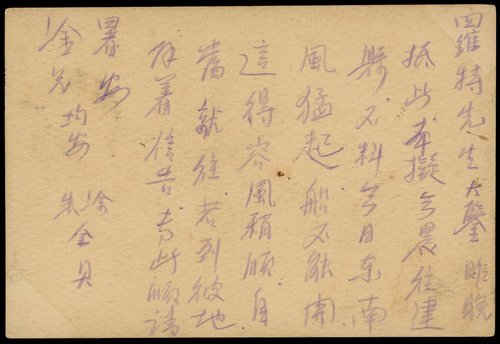 羅特先生大鑒昨晚
抵此本擬今晨往建
縣不料今日東南
風猛起船不能開
這得容風稍順自
當就往若到彼地
再着信告專此順請
暑安
金兄均安
徐金貝
朱